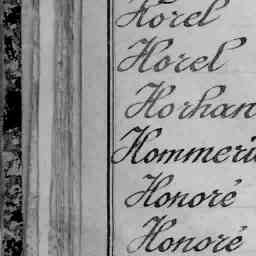 Horel
Horel
Horhan
Hommeri
Honoré
Honoré